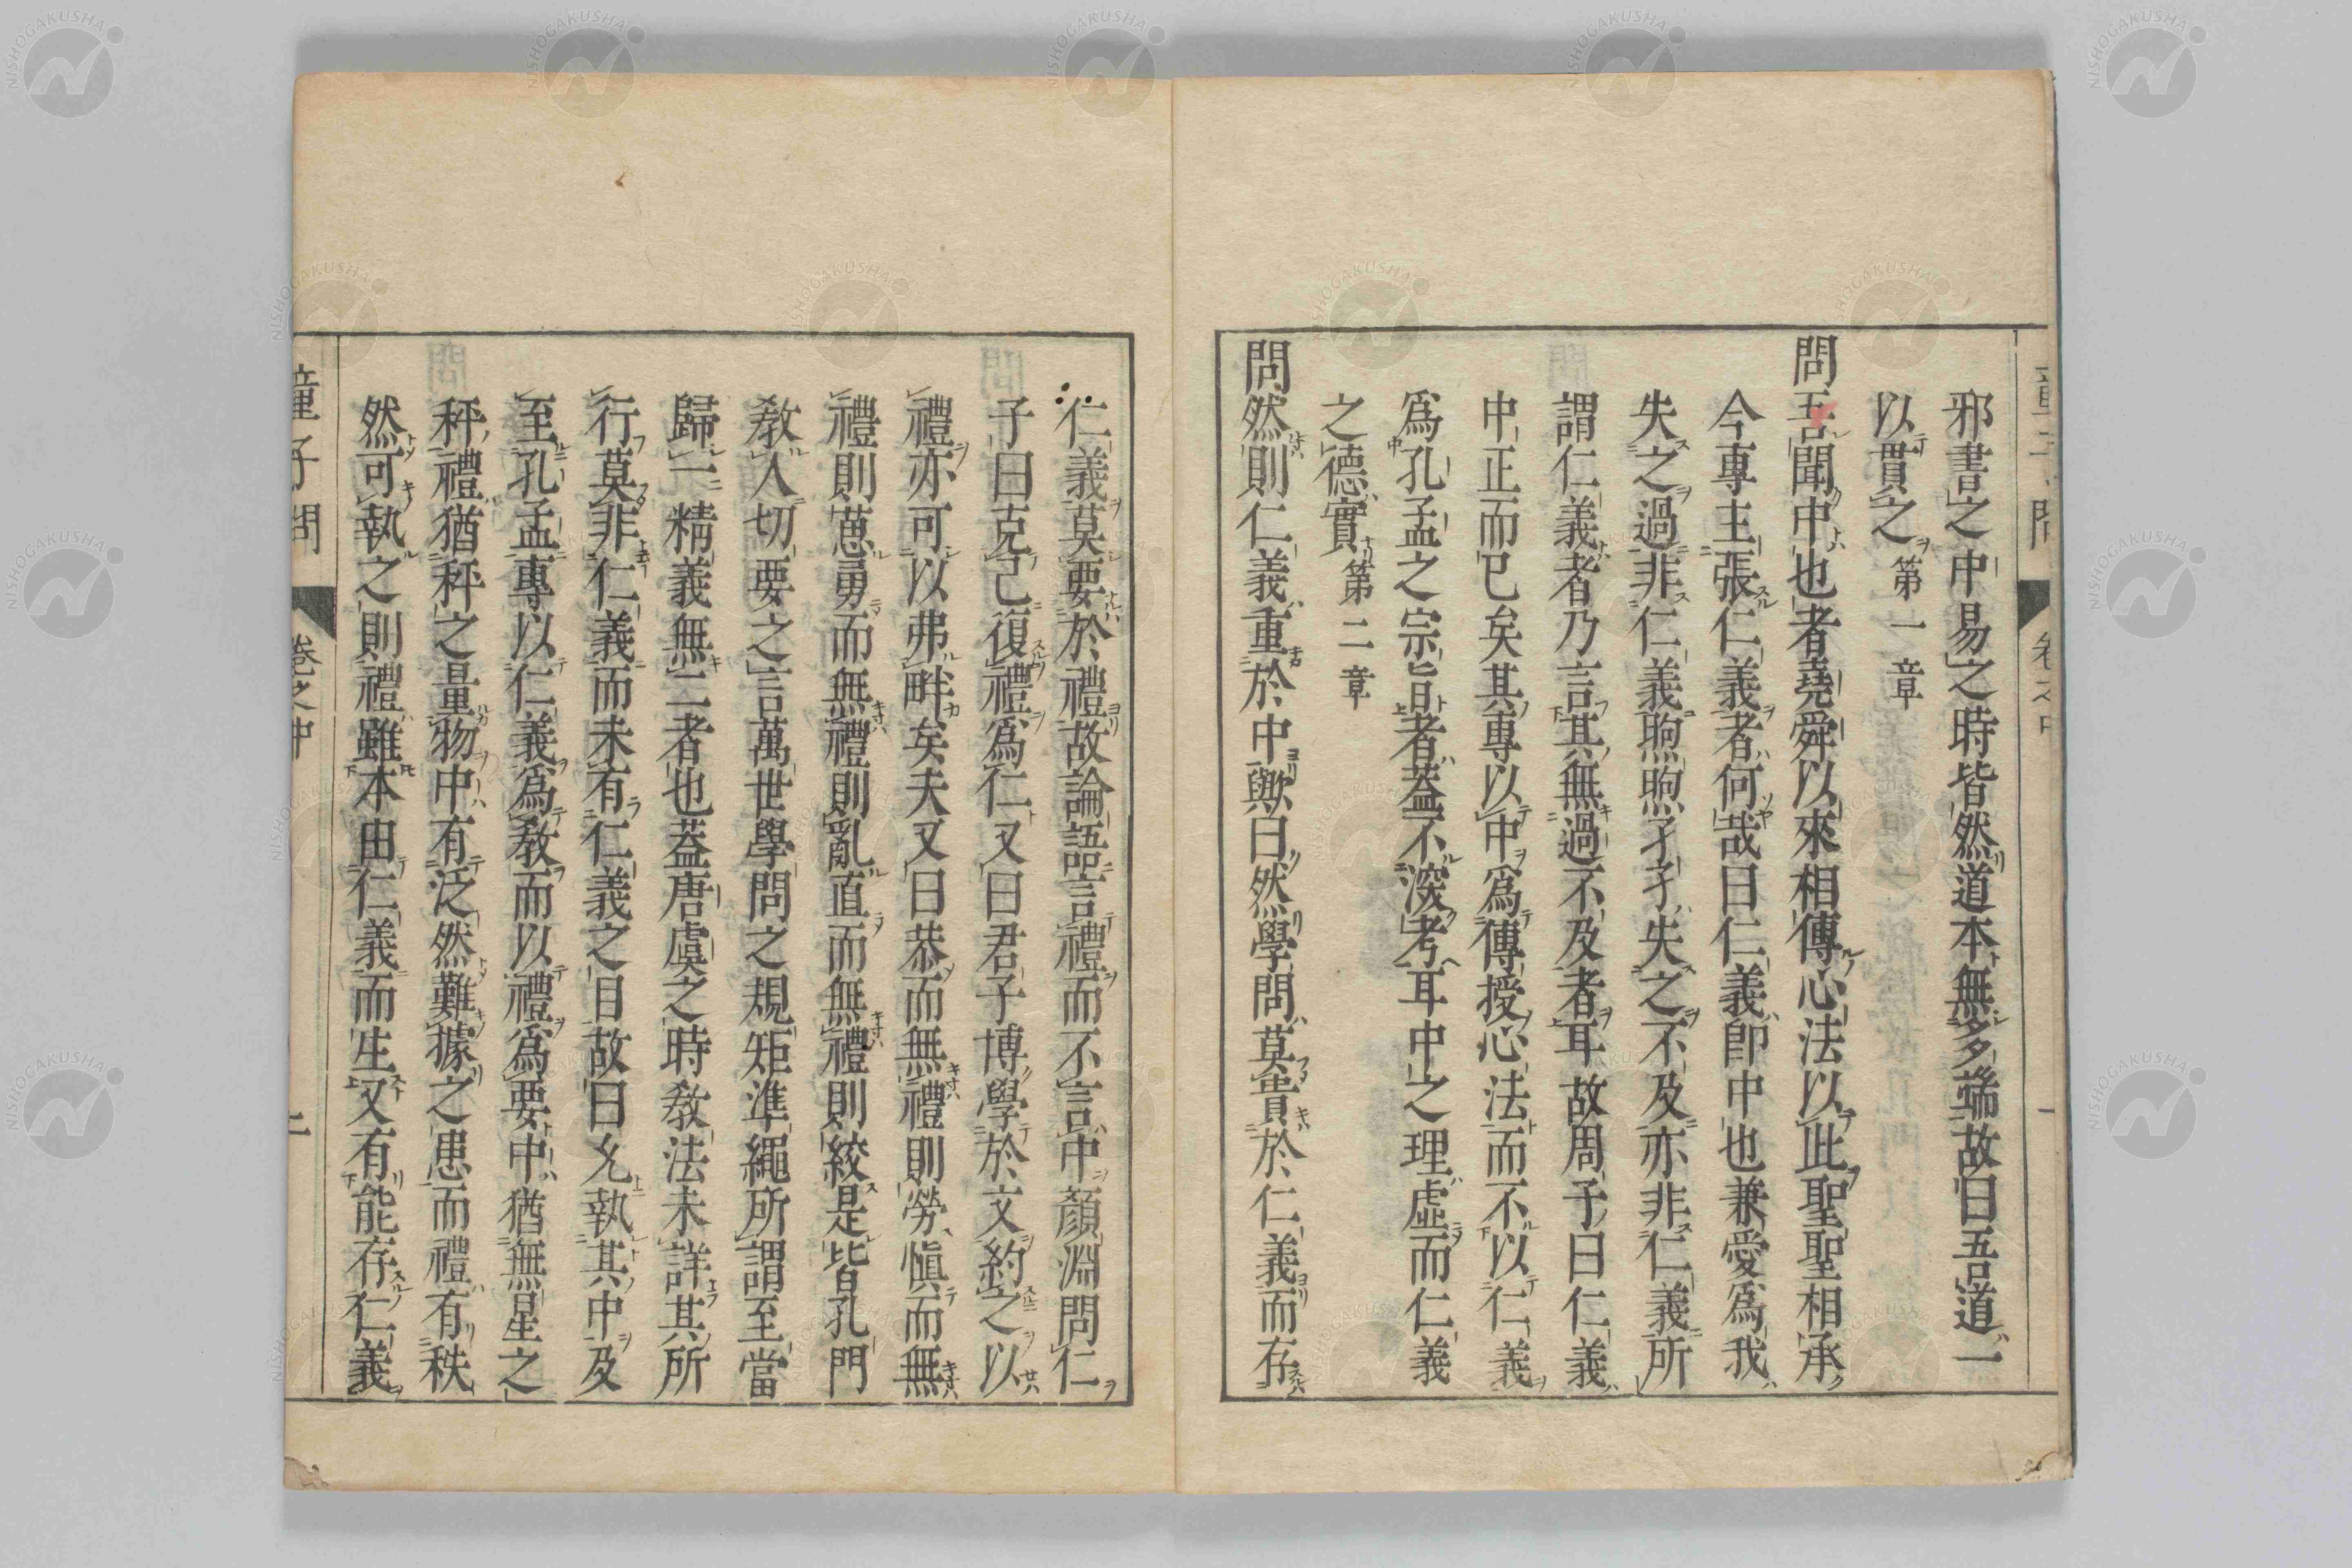 邪書之中易之時皆然道本無多端故曰吾道一
以貫之 第一章
問吾聞中也者堯舜以來相傳心法以此聖聖相承
今專主張仁義者何哉曰仁義即中也兼愛爲我
失之過非仁義煦煦孑孑失之不及亦非仁義所
謂仁義者乃言其無過不及者耳故周子曰仁義
中正而已矣其專以中爲傳授心法而不以仁義
爲孔孟之宗旨者蓋不深考耳中之理虛而仁義
之德實 第二章
問然則仁義重於中歟曰然學問莫貴於仁義而存
仁義莫要於禮故論語言禮而不言中顏淵問仁
子曰克己復禮爲仁又曰君子博學於文約之以
禮亦可以弗畔矣夫又曰恭而無禮則勞愼而無
禮則葸勇而無禮則亂直而無禮則絞是皆孔門
敎人切要之言萬世學問之規矩準繩所謂至當
歸一精義無二者也蓋唐虞之時敎法未詳其所
行莫非仁義而未有仁義之目故曰允執其中及
至孔孟專以仁義爲敎而以禮爲要中猶無星之
秤禮猶秤之量物中有泛然難據之患而禮有秩
然可執之則禮雖本由仁義而生又有能存仁義
童子問 卷之中 二